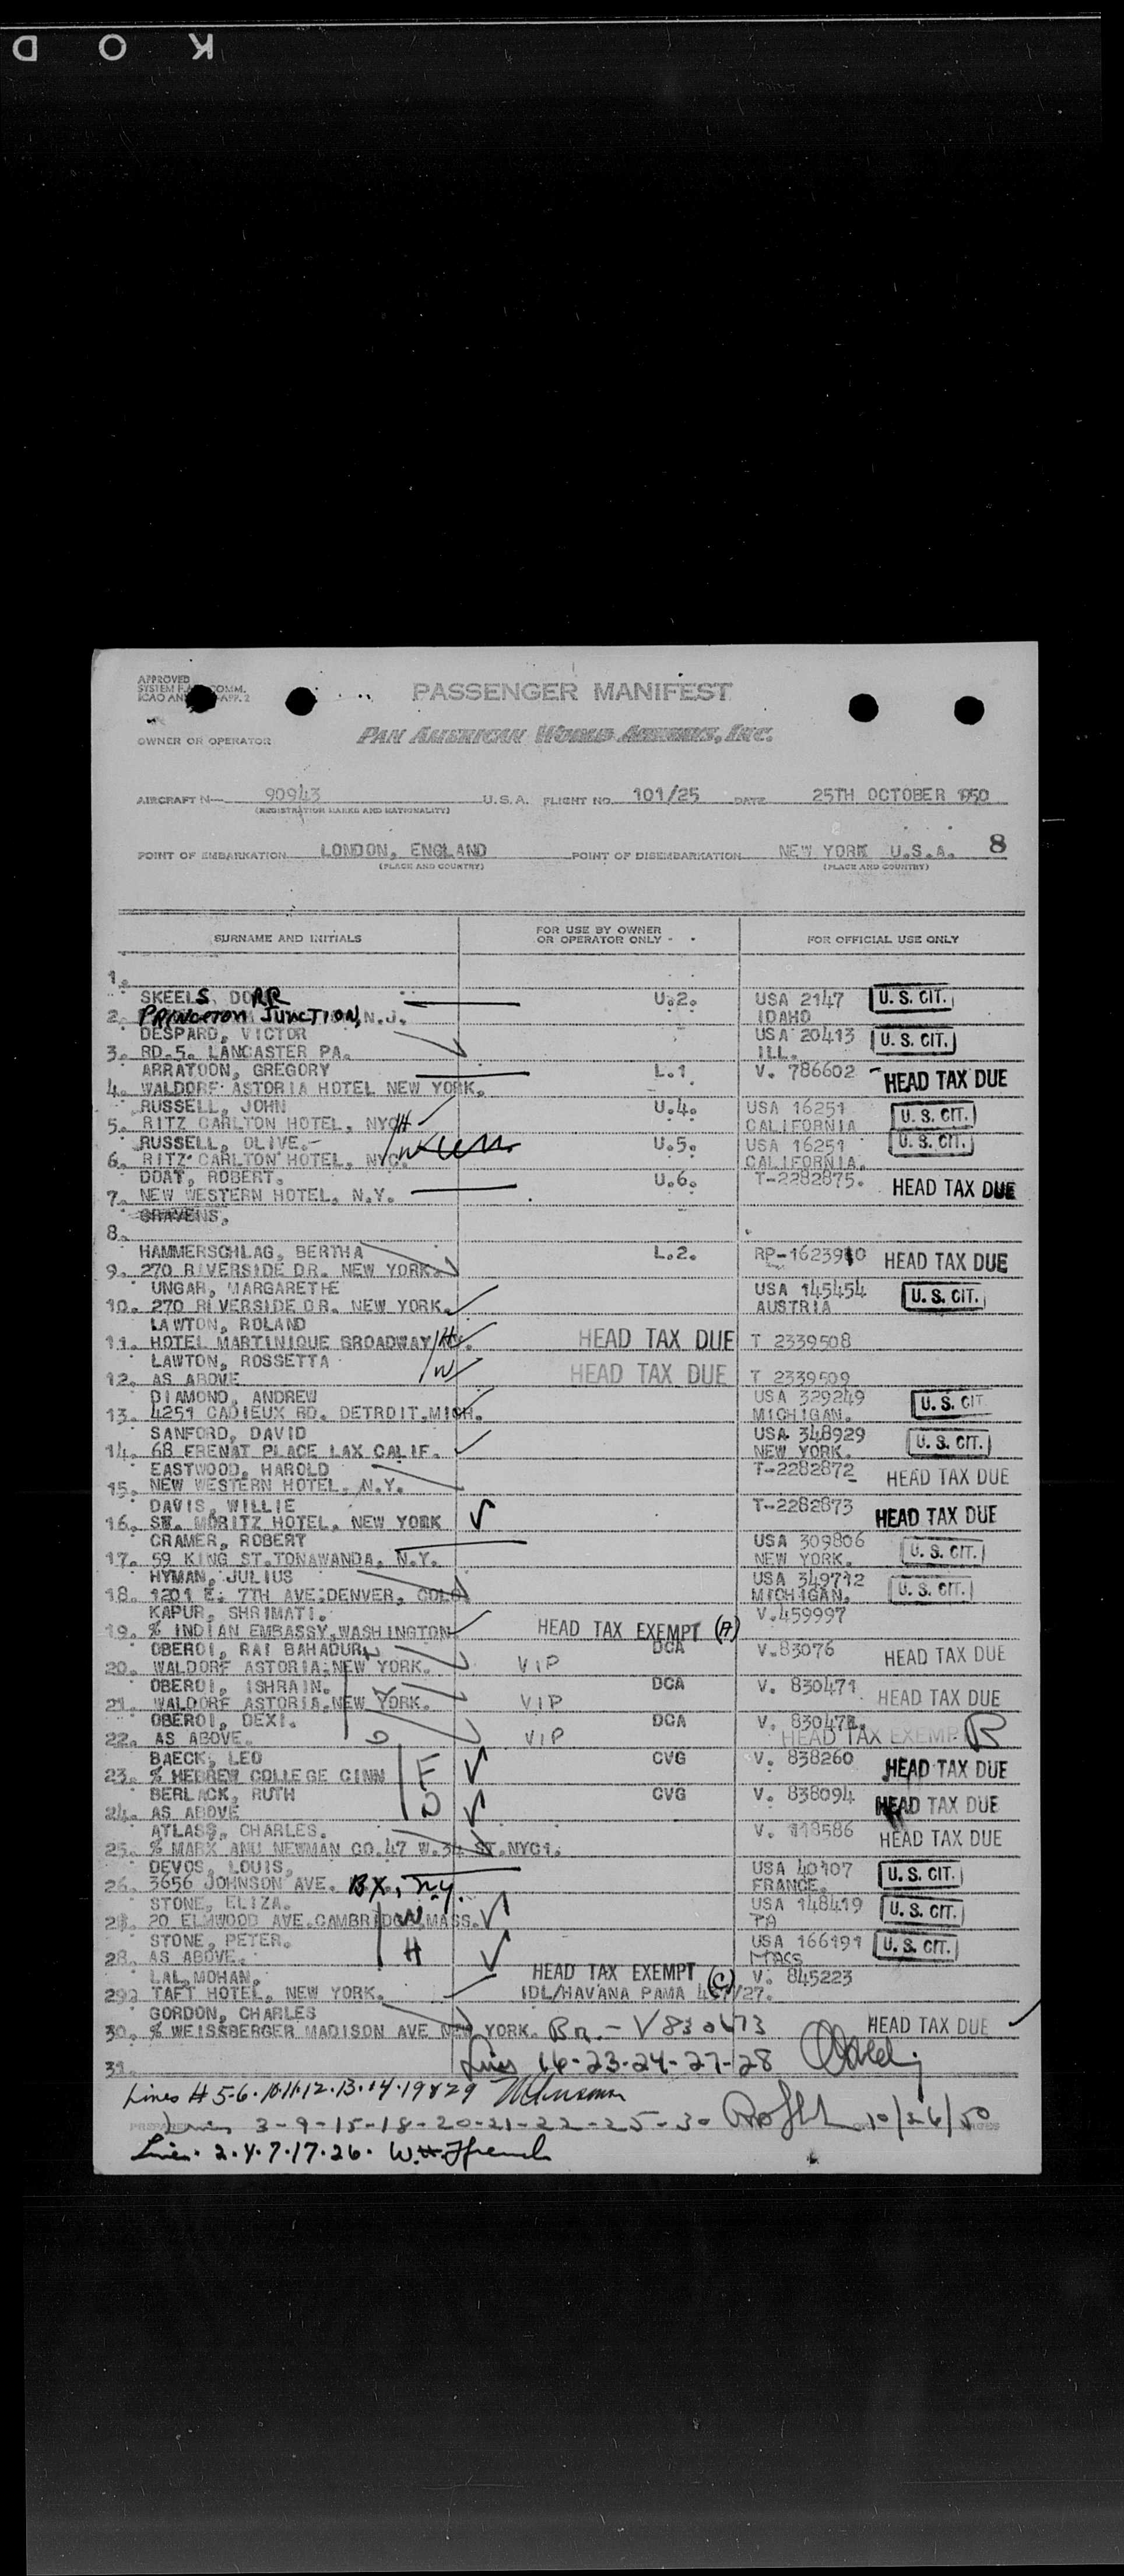 K O D
APPROVED
SYSTEM COMM.
ICAO APP. 2
PASSENGER MANIFEST
OWNER OR OPERATOR
PAN AMERICAN WORLD AIRWAYS, INC.
AIRCRAFT N— 90943 U.S.A. FLIGHT NO. 101/25 DATE 25TH OCTOBER 1950
(REGISTRATION MARKS AND NATIONALITY)
POINT OF EMBARKATION LONDON, ENGLAND POINT OF DISEMBARKATION NEW YORK U.S.A. 8
(PLACE AND COUNTRY) (PLACE AND COUNTRY)
SURNAME AND INITIALS FOR USE BY OWNER OR OPERATOR ONLY FOR OFFICIAL USE ONLY
1.
SKEELS, DORR U.2. USA 2147 U. S. CIT.
2. PRINCETON JUNCTION, N.J. IDAHO
DESPARD, VICTOR USA 20413 U. S. CIT.
3. RD.5. LANCASTER PA. ILL.
ARRATOON, GREGORY L.1 V. 786602 HEAD TAX DUE
4. WALDORF ASTORIA HOTEL NEW YORK.
RUSSELL, JOHN U.4. USA 16251 U. S. CIT.
5. RITZ CARLTON HOTEL, NYC H CALIFORNIA
RUSSELL, OLIVE. U.5. USA 16251 U. S. CIT.
6. RITZ CARLTON HOTEL, NYC. W CALIFORNIA.
DOAT, ROBERT. U.6. T-2282875. HEAD TAX DUE
7. NEW WESTERN HOTEL, N.Y.
GRAVENS,
8.
HAMMERSCHLAG, BERTHA L.2. RP-1623910 HEAD TAX DUE
9. 270 RIVERSIDE DR. NEW YORK.
UNGAR, MARGARETHE USA 145454 U. S. CIT.
10. 270 RIVERSIDE DR. NEW YORK. AUSTRIA
LAWTON, ROLAND
11. HOTEL MARTINIQUE BROADWAY H HEAD TAX DUE T 2339508
LAWTON, ROSSETTA
12. AS ABOVE W HEAD TAX DUE T 2339509
DIAMOND, ANDREW USA 329249 U. S. CIT
13. 4251 CADIEUX RD. DETROIT.MICH. MICHIGAN.
SANFORD, DAVID USA 348929 U. S. CIT.
14. 68 ERENAT PLACE LAX CALIF. NEW YORK.
EASTWOOD, HAROLD T-2282872 HEAD TAX DUE
15. NEW WESTERN HOTEL, N.Y.
DAVIS, WILLIE T-2282873 HEAD TAX DUE
16. ST. MORITZ HOTEL, NEW YORK
CRAMER, ROBERT USA 309806 U. S. CIT.
17. 59 KING ST.TONAWANDA, N.Y. NEW YORK.
HYMAN, JULIUS USA 349712 U. S. CIT.
18. 1201 E. 7TH AVE.DENVER, COLO MICHIGAN.
KAPUR, SHRIMATI. V.459997
19. % INDIAN EMBASSY,WASHINGTON HEAD TAX EXEMPT (A)
OBEROI, RAI BAHADUR DCA V.83076 HEAD TAX DUE
20. WALDORF ASTORIA,NEW YORK. VIP
OBEROI, ISHRAIN. DCA V. 830471 HEAD TAX DUE
21. WALDORF ASTORIA,NEW YORK. VIP
OBEROI, DEXI. DCA V. 830472. HEAD TAX EXEMP B
22. AS ABOVE. D VIP
BAECK, LEO F CVG V. 838260 HEAD TAX DUE
23. % HEBREW COLLEGE CINN
BERLACK, RUTH D CVG V. 838094 HEAD TAX DUE
24. AS ABOVE
ATLASS, CHARLES. V. 118586 HEAD TAX DUE
25. % MARX AND NEWMAN CO.47 W.34 ST.NYC1.
DEVOS, LOUIS, USA 40107 U. S. CIT.
26. 3656 JOHNSON AVE. BX, N.Y FRANCE.
STONE, ELIZA. W USA 148419 U. S. CIT.
27. 20 ELMWOOD AVE.CAMBRIDGE,MASS. PA
STONE, PETER. H USA 166191 U. S. CIT.
28. AS ABOVE. MASS
LAL,MOHAN, HEAD TAX EXEMPT (C) V. 845223
29. TAFT HOTEL, NEW YORK. IDL/HAVANA PAMA 27.
GORDON, CHARLES HEAD TAX DUE
30. % WEISSBERGER MADISON AVE NEW YORK. Bn.- V830473
31. Lines 16-23-24-27-28
Lines # 5-6-10-11-12-13-14-19 & 29
Lines 3-9-15-18-20-21-22-25-30 10/26/50
Lines. 2.4.7.17.26. W.H. Ffrench